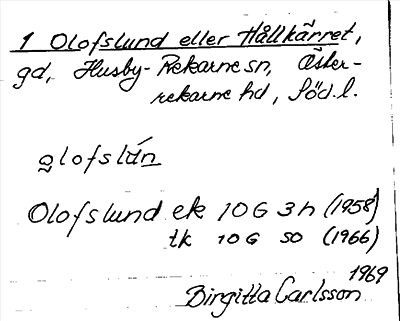 1 Olofslund eller Hållkärret,
gd, Husby-Rekarne sn, Öster-
rekarne hd, Söd. l.
olofslún
Olofslund ek 10G 3h (1958)
tk 10G SO (1966)
1969
Birgitta Carlsson